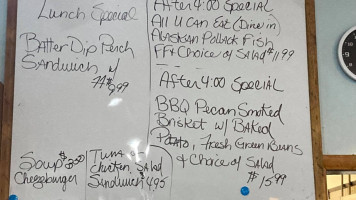 Lunch Special
Batter Dip Perch
Sandwich w/
FF $8.99
Soup $3.50
Cheezburger
Tuna
Chicken, Salad
Sandwich 4.95
After 4:00 Special
All U Can Eat (Dine in)
Alaskan Pollack Fish
FF + Choice of Salad $11.99
After 4:00 Special
BBQ Pecan Smoked
Brisket w/ Baked
Potato, Fresh Green Beans
+ Choice of Salad
$15.99